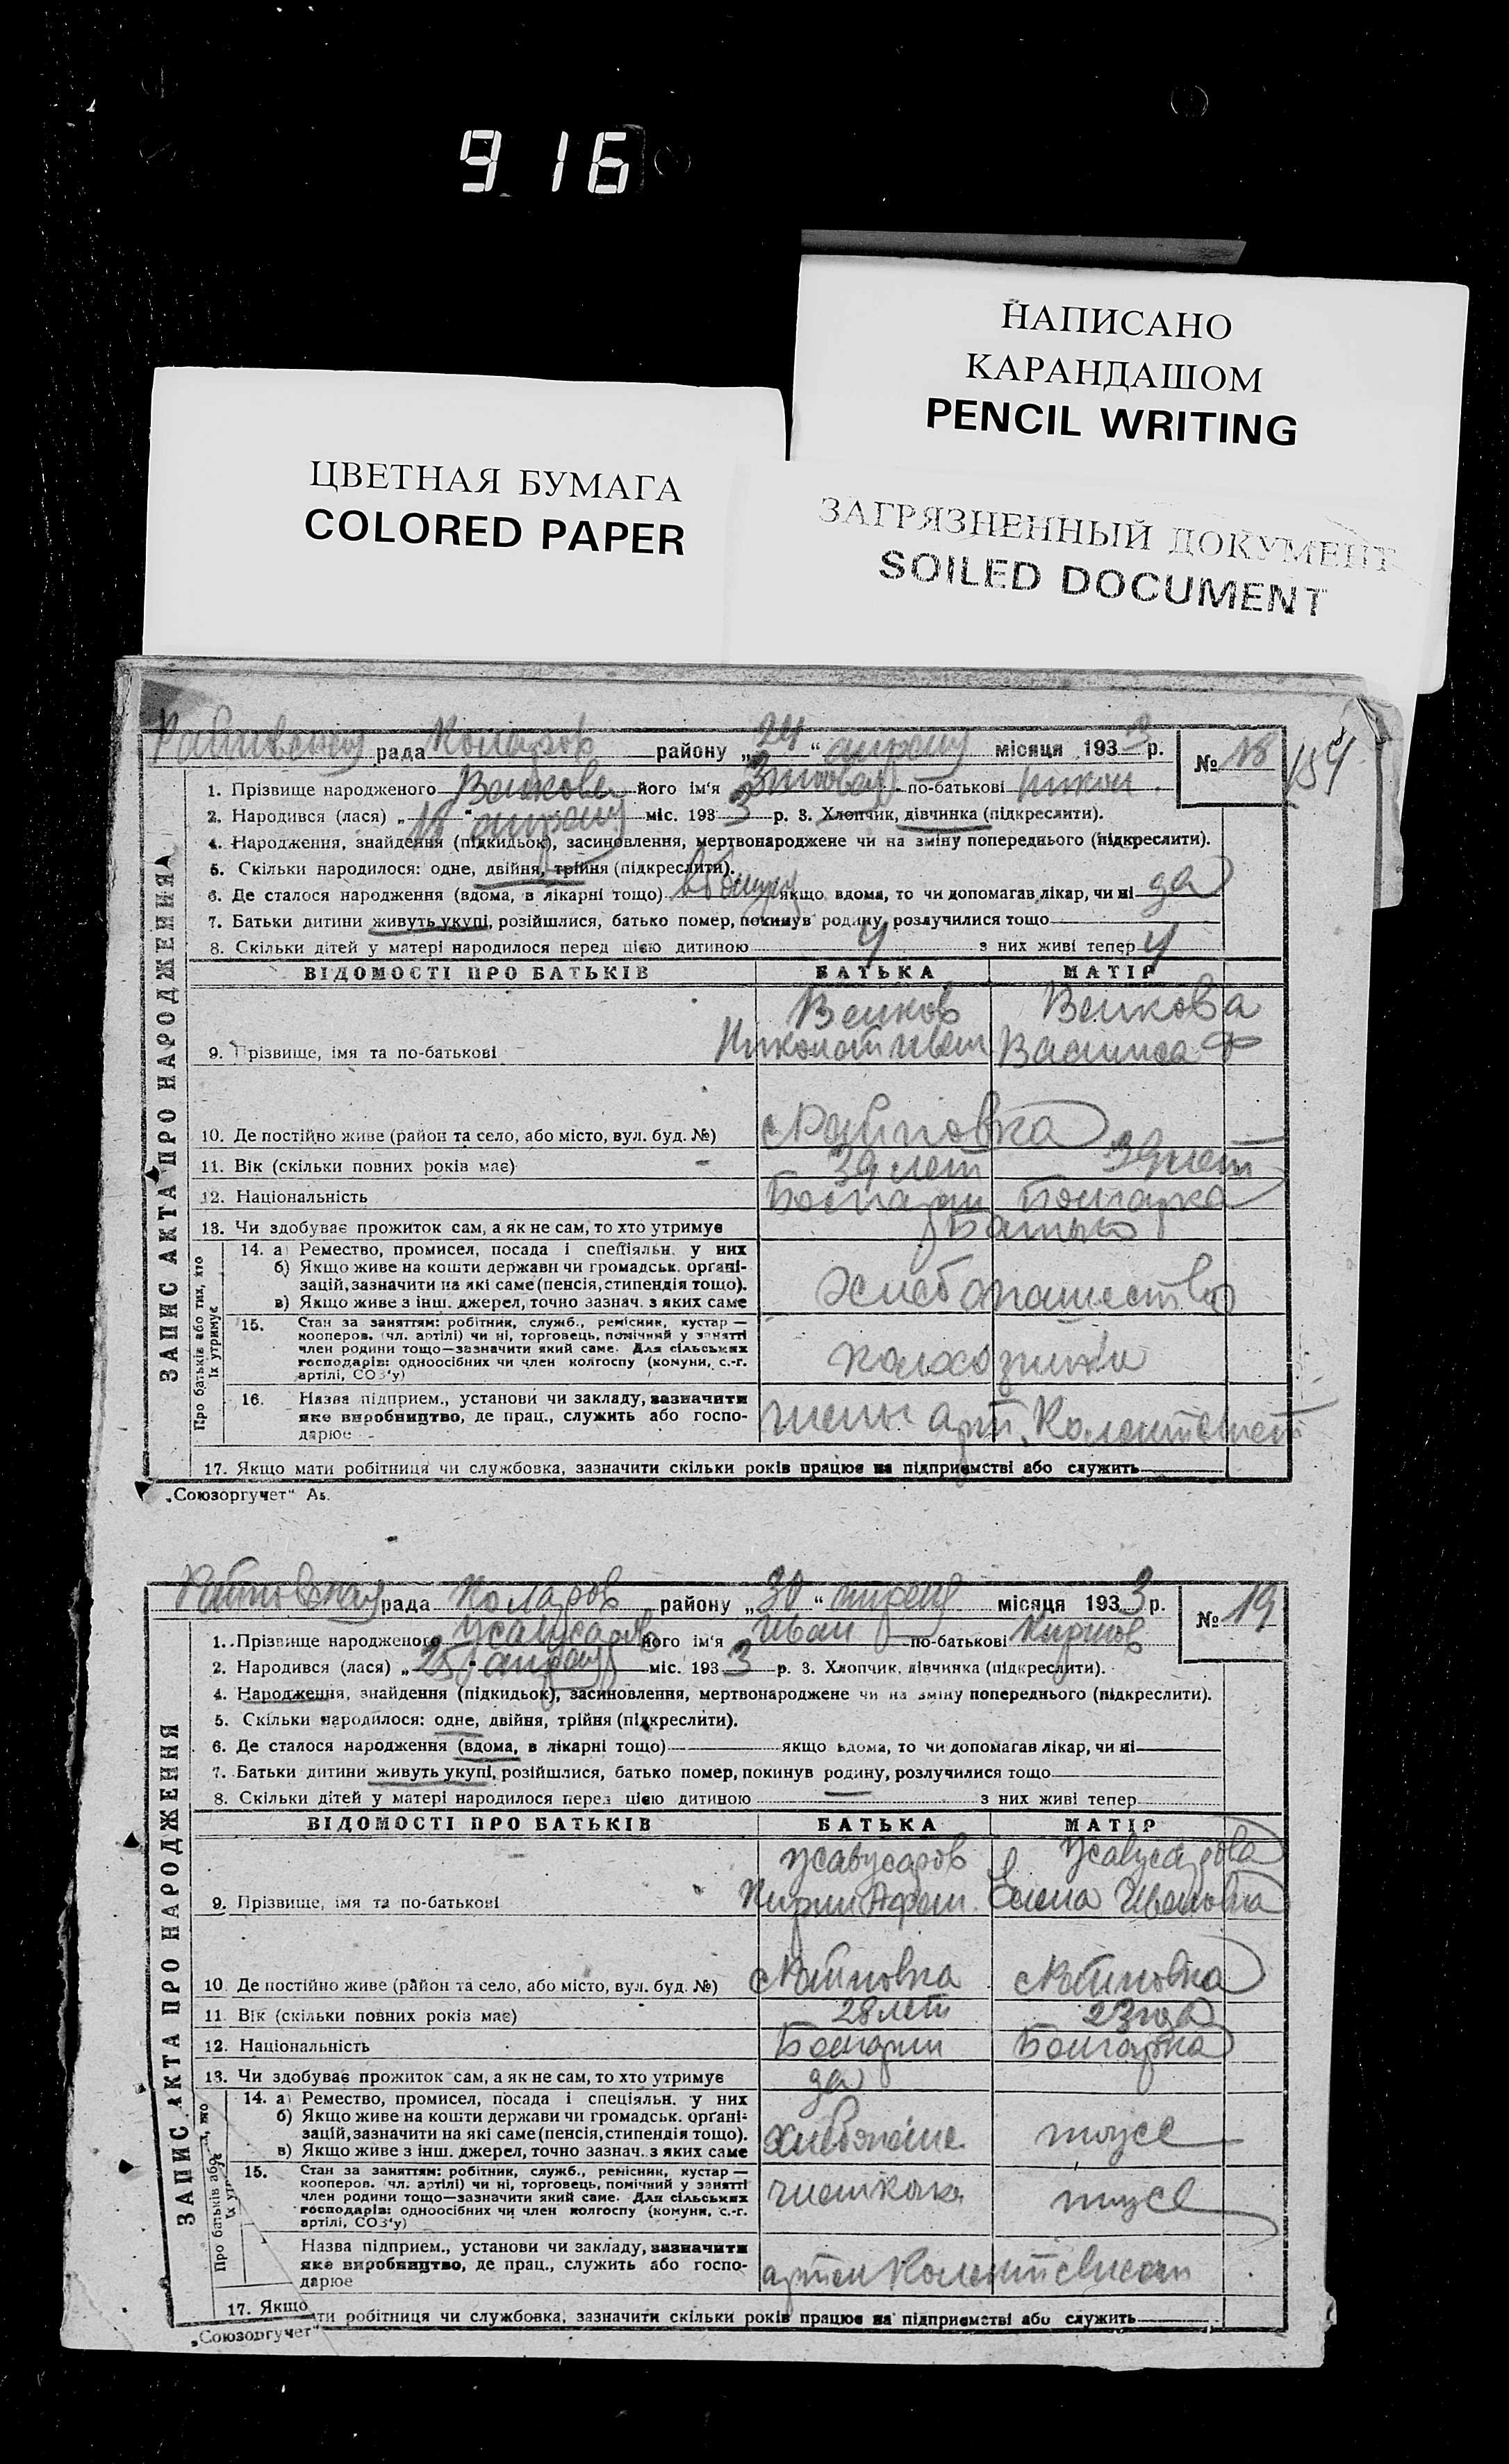 916
НАПИСАНО
КАРАНДАШОМ
PENCIL WRITING
ЦВЕТНАЯ БУМАГА
COLORED PAPER
ЗАГРЯЗНЕННЫЙ ДОКУМЕНТ
SOILED DOCUMENT
рада Коларов району „24“ апреля місяця 1933 р. № 18
154
ЗАПИС АКТА ПРО НАРОДЖЕННЯ
1. Прізвище народженого Велкова його ім'я по-батькові Никол.
2. Народився (лася) „18“ апреля міс. 1933 р. 3. Хлопчик, дівчинка (підкреслити).
4. Народження, знайдення (підкидьок), засиновлення, мертвонароджене чи на зміну попереднього (підкреслити).
5. Скільки народилося: одне, двійня, трійня (підкреслити).
6. Де сталося народження (вдома, в лікарні тощо) якщо вдома, то чи допомагав лікар, чи ні да
7. Батьки дитини живуть укупі, розійшлися, батько помер, покинув родину, розлучилися тощо
8. Скільки дітей у матері народилося перед цією дитиною 4 з них живі тепер 4
ВІДОМОСТІ ПРО БАТЬКІВ БАТЬКА МАТІР
Велков Велкова
9. Прізвище, імя та по-батькові Николай Иван Василиса Ф
10. Де постійно живе (район та село, або місто, вул. буд. №)
11. Вік (скільки повних років має) 39 лет 39 лет
12. Національність Болгарин Болгарка
13. Чи здобуває прожиток сам, а як не сам, то хто утримує Батько
Про батьків або тих, хто їх утримує
14. а) Ремество, промисел, посада і спеціяльн. у них
б) Якщо живе на кошти держави чи громадськ. органі-
зацій, зазначити на які саме (пенсія, стипендія тощо).
в) Якщо живе з інш. джерел, точно зазнач. з яких саме
Хлебопашество
15. Стан за заняттям: робітник, служб., ремісник, кустар —
кооперов. (чл. артілі) чи ні, торговець, помічний у занятті
член родини тощо—зазначити який саме. Для сільських
господарів: одноосібних чи член колгоспу (комуни, с.-г.
артілі, СОЗ'у)
колхозники
16. Назва підприєм., установи чи закладу, зазначити
яке виробництво, де прац., служить або госпо-
дарює
члены арт.
17. Якщо мати робітниця чи службовка, зазначити скільки років працює на підприємстві або служить
„Союзоргучет“ А5.
рада Коларов району „30“ апреля місяця 1933 р. № 19
ЗАПИС АКТА ПРО НАРОДЖЕННЯ
1. Прізвище народженого його ім'я Иван по-батькові Кирилов
2. Народився (лася) „25“ апреля міс. 1933 р. 3. Хлопчик, дівчинка (підкреслити).
4. Народження, знайдення (підкидьок), засиновлення, мертвонароджене чи на зміну попереднього (підкреслити).
5. Скільки народилося: одне, двійня, трійня (підкреслити).
6. Де сталося народження (вдома, в лікарні тощо) якщо вдома, то чи допомагав лікар, чи ні
7. Батьки дитини живуть укупі, розійшлися, батько помер, покинув родину, розлучилися тощо
8. Скільки дітей у матері народилося перед цією дитиною з них живі тепер
ВІДОМОСТІ ПРО БАТЬКІВ БАТЬКА МАТІР
9. Прізвище, імя та по-батькові Кирил Елена Ивановна
10. Де постійно живе (район та село, або місто, вул. буд. №)
11. Вік (скільки повних років має) 28 лет 23 года
12. Національність Болгарин Болгарка
13. Чи здобуває прожиток сам, а як не сам, то хто утримує да
14. а) Ремество, промисел, посада і спеціяльн. у них
б) Якщо живе на кошти держави чи громадськ. органі-
зацій, зазначити на які саме (пенсія, стипендія тощо).
в) Якщо живе з інш. джерел, точно зазнач. з яких саме
15. Стан за заняттям: робітник, служб., ремісник, кустар —
кооперов. (чл. артілі) чи ні, торговець, помічний у занятті
член родини тощо—зазначити який саме. Для сільських
господарів: одноосібних чи член колгоспу (комуни, с.-г.
артілі, СОЗ'у)
Назва підприєм., установи чи закладу, зазначити
яке виробництво, де прац., служить або госпо-
дарює
17. Якщо
ти робітниця чи службовка, зазначити скільки років працює на підприємстві або служить
„Союзоргучет“